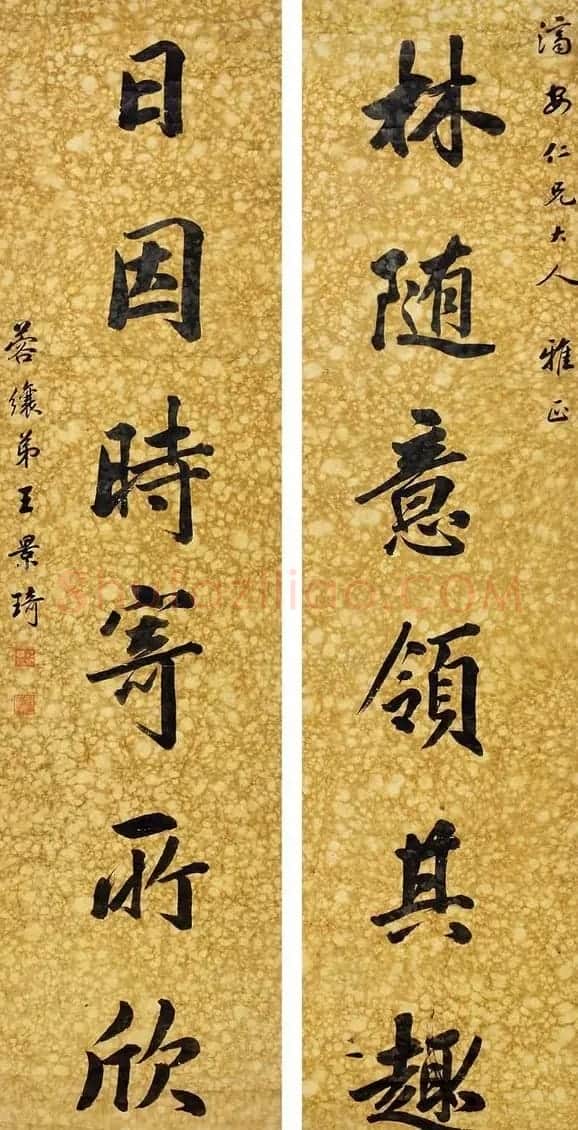 濟安仁兄大人 雅正
林随意領其趣
日因時寄所欣
蓉纕弟王景琦